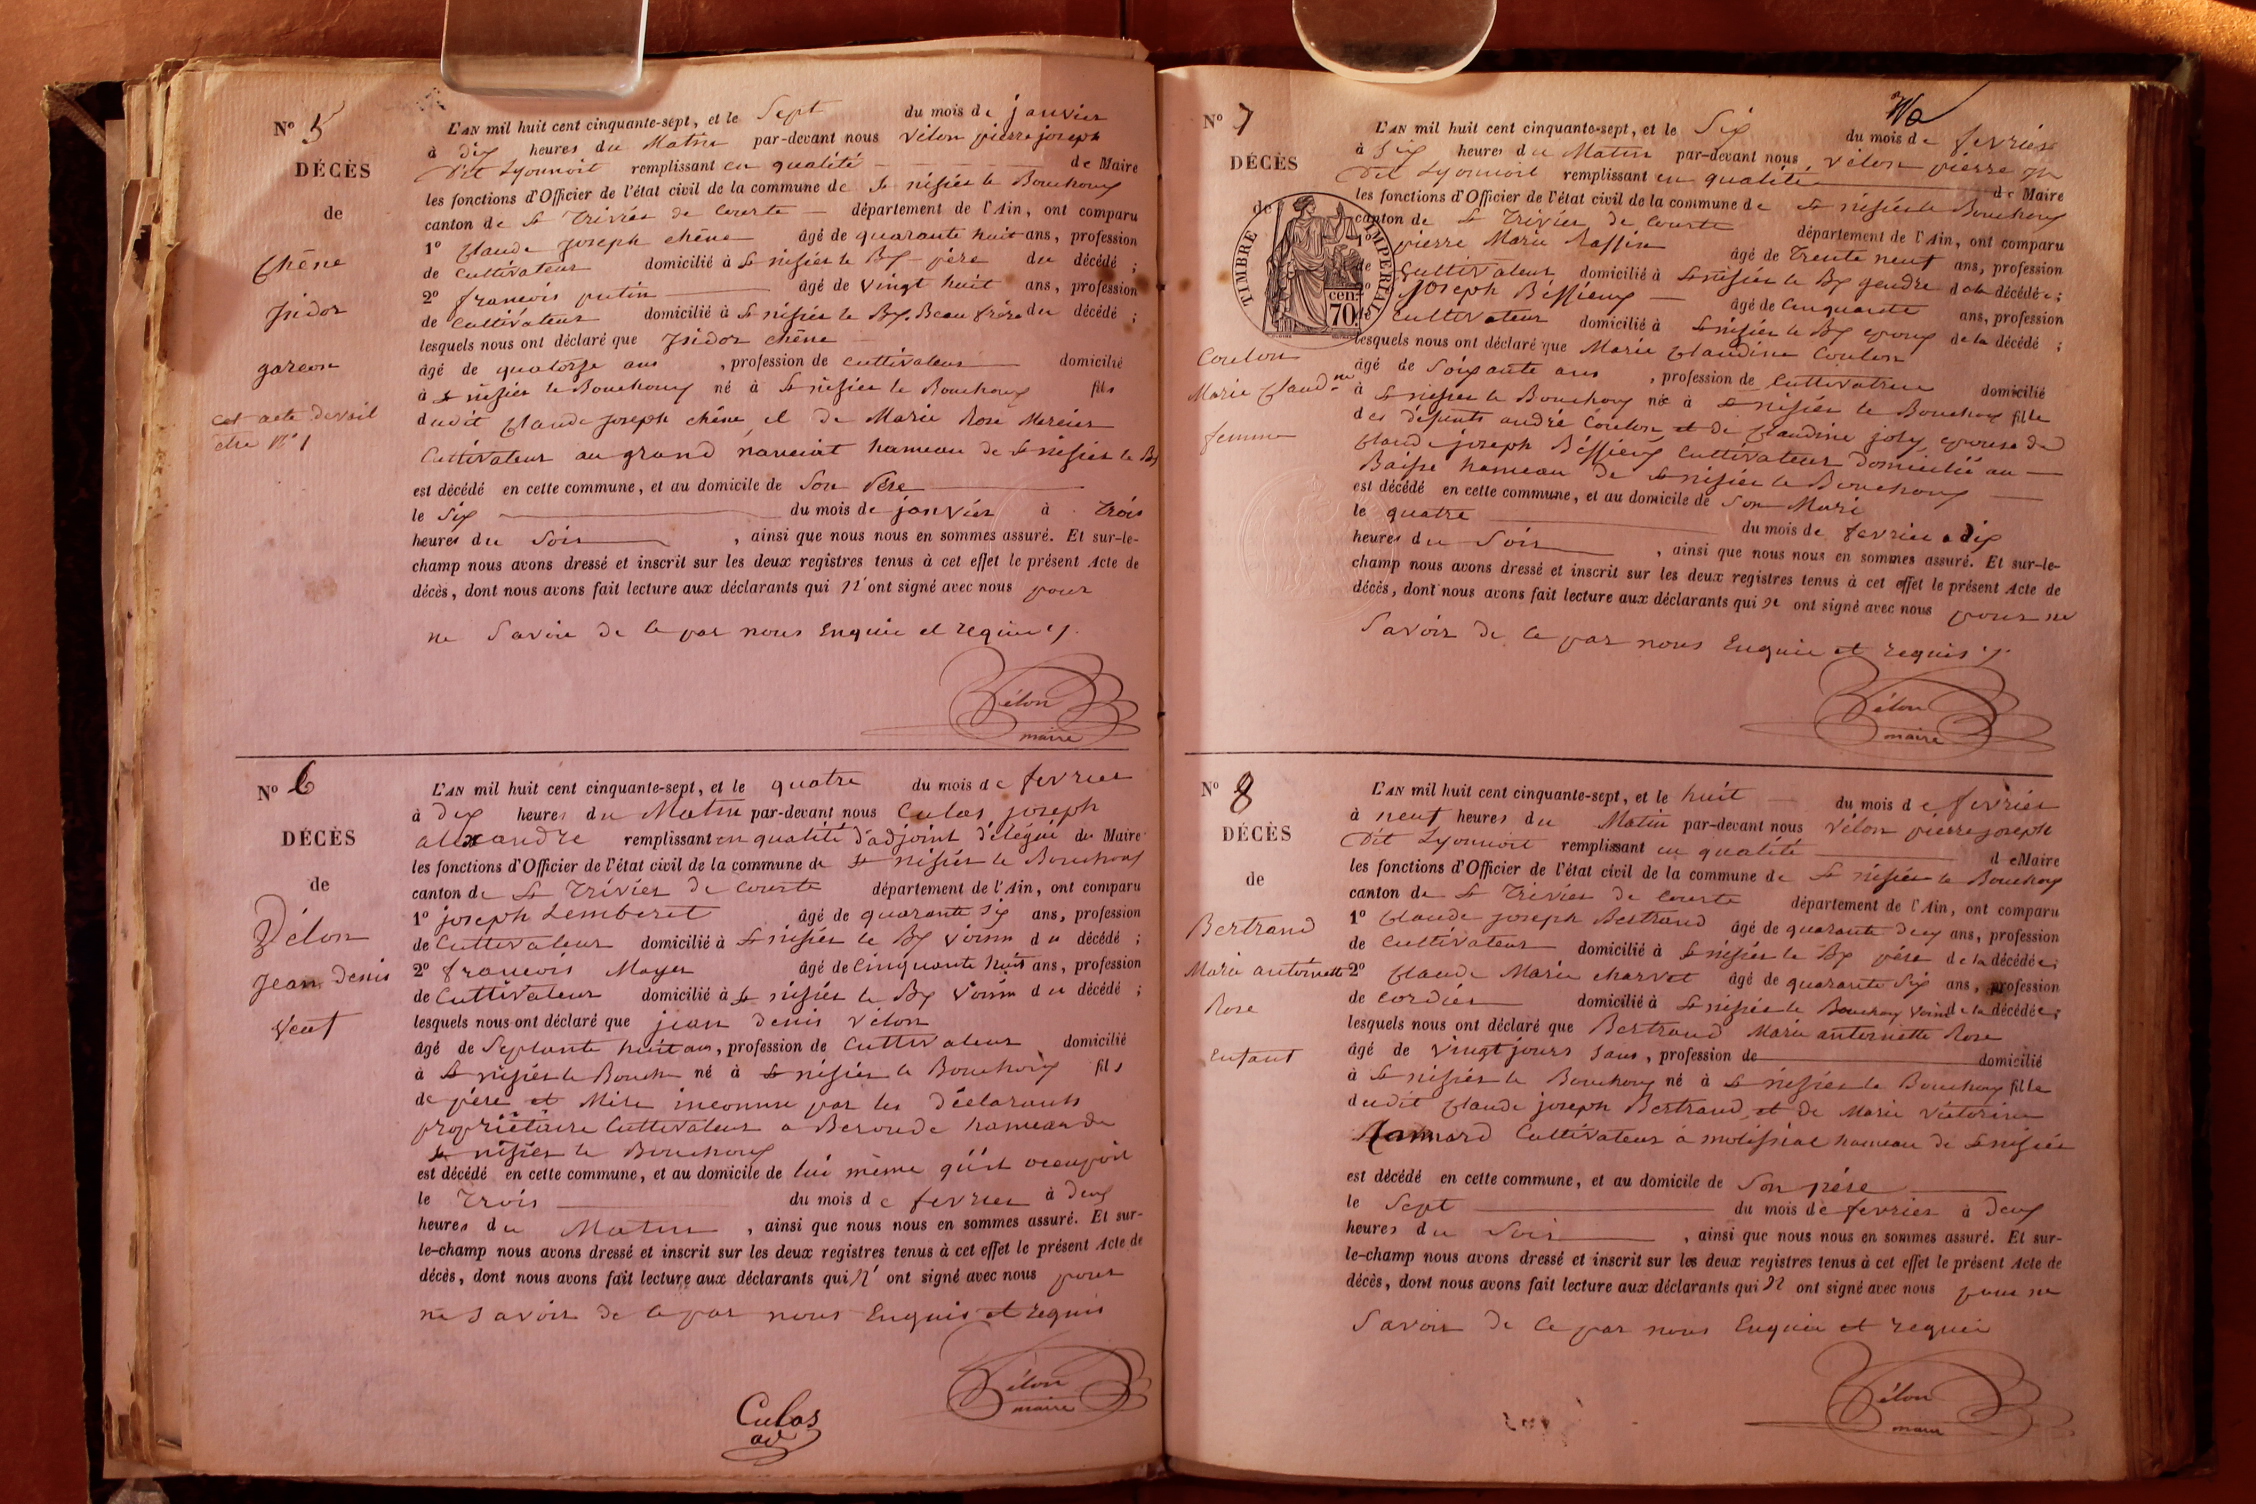 N° 5
DÉCÈS
de
Chêne
Isidor
garcon
cet acte devait
être N° 1
L'AN mil huit cent cinquante-sept, et le Sept du mois de janvier
à dix heures du Matin par-devant nous Vélon pierre joseph
Dit Lyonnoit remplissant en qualité de Maire
les fonctions d'Officier de l'état civil de la commune de St nisier le Bouchoux
canton de St Trivier de Courte département de l'Ain, ont comparu
1° Claude joseph chêne âgé de quarante huit ans, profession
de Cultivateur domicilié à St nisier le Bx père du décédé ;
2° francois putin âgé de vingt huit ans, profession
de Cultivateur domicilié à St nisier le Bx. Beau frère du décédé ;
lesquels nous ont déclaré que Isidor chêne
âgé de quatorze ans , profession de cultivateur domicilié
à St nisier le Bouchoux né à St nisier le Bouchoux fils
dudit Claude joseph chêne et de Marie Rose Mercier
Cultivateur au grand hameau de St nisier le Bx
est décédé en cette commune, et au domicile de Son Père
le Six du mois de janvier à trois
heures du Soir , ainsi que nous nous en sommes assuré. Et sur-le-
champ nous avons dressé et inscrit sur les deux registres tenus à cet effet le présent Acte de
décès, dont nous avons fait lecture aux déclarants qui n' ont signé avec nous pour
ne Savoir de ce par nous Enquis et requis
Vélon
maire
N° 6
DÉCÈS
de
Vélon
Jean Denis
veuf
L'AN mil huit cent cinquante-sept, et le quatre du mois de fevrier
à dix heures du Matin par-devant nous Culas joseph
alexandre remplissant en qualité d'adjoint délégué du Maire
les fonctions d'Officier de l'état civil de la commune de St nisier le Bouchoux
canton de St Trivier de Courte département de l'Ain, ont comparu
1° joseph Lemberet âgé de quarante Six ans, profession
de Cultivateur domicilié à St nisier le Bx voisin du décédé ;
2° francois Moyer âgé de Cinquante huit ans, profession
de Cultivateur domicilié à St nisier le Bx Voisin du décédé ;
lesquels nous ont déclaré que jean denis Vélon
âgé de Septante huit ans, profession de Cultivateur domicilié
à St nisier le Bouch né à St nisier le Bouchoux fils
de père et Mère inconnu par les Déclarants
propriétaire Cultivateur a Beroude hameau de
St nisier le Bouchoux
est décédé en cette commune, et au domicile de lui même qu'il occupoit
le Trois du mois de fevrier à deux
heures du Matin , ainsi que nous nous en sommes assuré. Et sur-
le-champ nous avons dressé et inscrit sur les deux registres tenus à cet effet le présent Acte de
décès, dont nous avons fait lecture aux déclarants qui n' ont signé avec nous pour
ne Savoir de ce par nous Enquis et requis
Vélon
maire
Culas
adj
N° 7
DÉCÈS
de
TIMBRE IMPERIAL
cen.
70.
Coulon
Marie Claudne
femme
L'AN mil huit cent cinquante-sept, et le Six du mois de fevrier
à Six heures du Matin par-devant nous Vélon pierre jph
Dit Lyonnoit remplissant en qualité de Maire
les fonctions d'Officier de l'état civil de la commune de St nisier le Bouchoux
canton de St Trivier de Courte département de l'Ain, ont comparu
1° pierre Marie Raffin âgé de Trente neuf ans, profession
de Cultivateur domicilié à St nisier le Bx gendre de la décédée ;
2° Joseph Béssieux âgé de Cinquante ans, profession
de Cultivateur domicilié à St nisier le Bx epoux de la décédé ;
lesquels nous ont déclaré que Marie Claudine Coulon
âgé de Soixante ans , profession de Cultivatrice domicilié
à St nisier le Bouchoux née à St nisier le Bouchoux fille
des défunts andré Coulon et de Claudine joly, epouse de
Claude joseph Béssieux Cultivateur Domicilié au
Baisse hameau de St nisier le Bouchoux
est décédé en cette commune, et au domicile de Son Mari
le quatre du mois de fevrier a dix
heures du Soir , ainsi que nous nous en sommes assuré. Et sur-le-
champ nous avons dressé et inscrit sur les deux registres tenus à cet effet le présent Acte de
décès, dont nous avons fait lecture aux déclarants qui n ont signé avec nous pour ne
Savoir de ce par nous Enquis et requis
Vélon
maire
N° 8
DÉCÈS
de
Bertrand
Marie antoinette
Rose
Enfant
L'AN mil huit cent cinquante-sept, et le huit du mois de fevrier
à neuf heures du Matin par-devant nous Vélon pierre joseph
Dit Lyonnoit remplissant en qualité de Maire
les fonctions d'Officier de l'état civil de la commune de St nisier le Bouchoux
canton de St Trivier de Courte département de l'Ain, ont comparu
1° Claude joseph Bertrand âgé de quarante deux ans, profession
de Cultivateur domicilié à St nisier le Bx père de la décédée ;
2° Claude Marie charvet âgé de quarante Six ans, profession
de cordier domicilié à St nisier le Bouchoux voisin de la décédée ;
lesquels nous ont déclaré que Bertrand Marie antoinette Rose
âgé de vingt jours Sans , profession de domicilié
à St nisier le Bouchoux né à St nisier le Bouchoux fille
dudit Claude joseph Bertrand et de Marie Victorine
Cultivateur à hameau de St nisier
est décédé en cette commune, et au domicile de Son père
le Sept du mois de fevrier à deux
heures du Soir , ainsi que nous nous en sommes assuré. Et sur-
le-champ nous avons dressé et inscrit sur les deux registres tenus à cet effet le présent Acte de
décès, dont nous avons fait lecture aux déclarants qui n ont signé avec nous pour ne
Savoir de ce par nous Enquis et requis
Vélon
maire